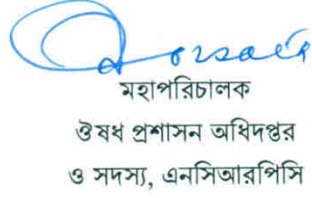 মহাপরিচালক
ঔষধ প্রশাসন অধিদপ্তর
ও সদস্য, এনসিআরপিসি